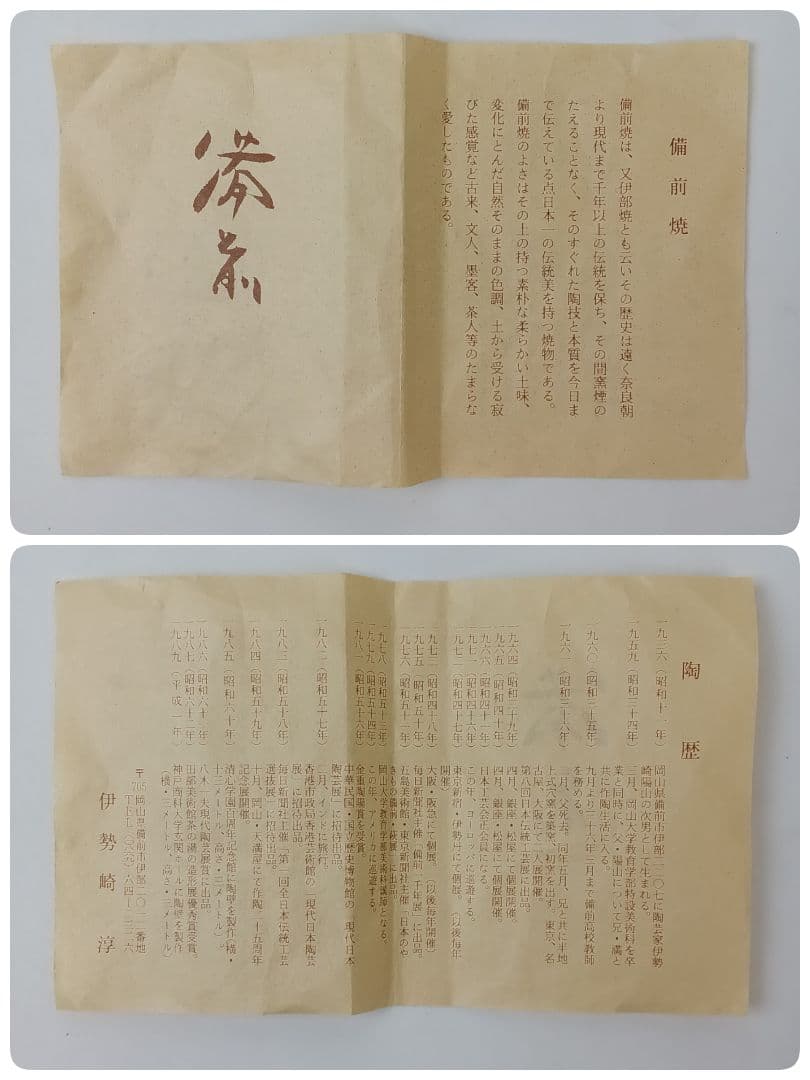 備前焼
備前焼は、又伊部焼とも云いその歴史は遠く奈良朝
より現代まで千年以上の伝統を保ち、その間窯煙の
たえることなく、そのすぐれた陶技と本質を今日ま
で伝えている点日本一の伝統美を持つ焼物である。
備前焼のよさはその土の持つ素朴な柔らかい土味、
変化にとんだ自然そのままの色調、土から受ける寂
びた感覚など古来、文人、墨客、茶人等のたまらな
く愛したものである。
備前
陶歴
一九三六(昭和十一年)
岡山県備前市伊部に陶芸家伊勢
崎陽山の次男として生まれる。
一九五九(昭和三十四年)
三月、岡山大学教育学部特設美術科を卒
業と同時に、父・陽山について兄・満と
共に作陶生活に入る。
一九六〇(昭和三十五年)
九月より三十六年三月まで備前高校教師
を務める。
一九六一(昭和三十六年)
三月、父死去。同年五月、兄と共に半地
上式穴窯を築窯、初窯を出す。東京、名
古屋、大阪にて二人展開催。
第八回日本伝統工芸展に出品。
一九六四(昭和三十九年)
四月、銀座・松屋にて個展開催。
一九六五(昭和四十年)
四月、銀座・松屋にて個展開催。
一九六六(昭和四十一年)
日本工芸会正会員になる。
一九七一(昭和四十六年)
この年、ヨーロッパに巡遊する。
一九七二(昭和四十七年)
東京新宿・伊勢丹にて個展。(以後毎年
開催)
一九七三(昭和四十八年)
大阪・阪急にて個展。(以後毎年開催)
一九七五(昭和五十年)
毎日新聞社主催「備前一千年展」に出品。
一九七六(昭和五十一年)
五島美術館・東京新聞社主催「日本のや
きもの備前・萩展」に出品
一九七八(昭和五十三年)
岡山大学教育学部美術科講師となる。
一九七九(昭和五十四年)
この年、アメリカに巡遊する。
一九八一(昭和五十六年)
金重陶陽賞を受賞
中華民国・国立歴史博物館の「現代日本
陶芸展」に招待出品。
一九八二(昭和五十七年)
二月、インドに旅行。
香港市政局香港芸術館の「現代日本陶芸
展」に招待出品。
一九八三(昭和五十八年)
毎日新聞社主催「第一回全日本伝統工芸
選抜展」に招待出品。
一九八四(昭和五十九年)
十月、岡山・天満屋にて作陶二十五周年
記念展開催。
一九八五(昭和六十年)
清心学園百周年記念館に陶壁を製作(横・
十三メートル、高さ・三メートル)。
一九八六(昭和六十一年)
八木一夫現代陶芸展賞に出品。
一九八七(昭和六十二年)
田部美術館茶の湯の造形展優秀賞受賞。
一九八九(平成一年)
神戸商科大学玄関ホールに陶壁を製作
〒705 岡山県備前市伊部
伊勢崎淳